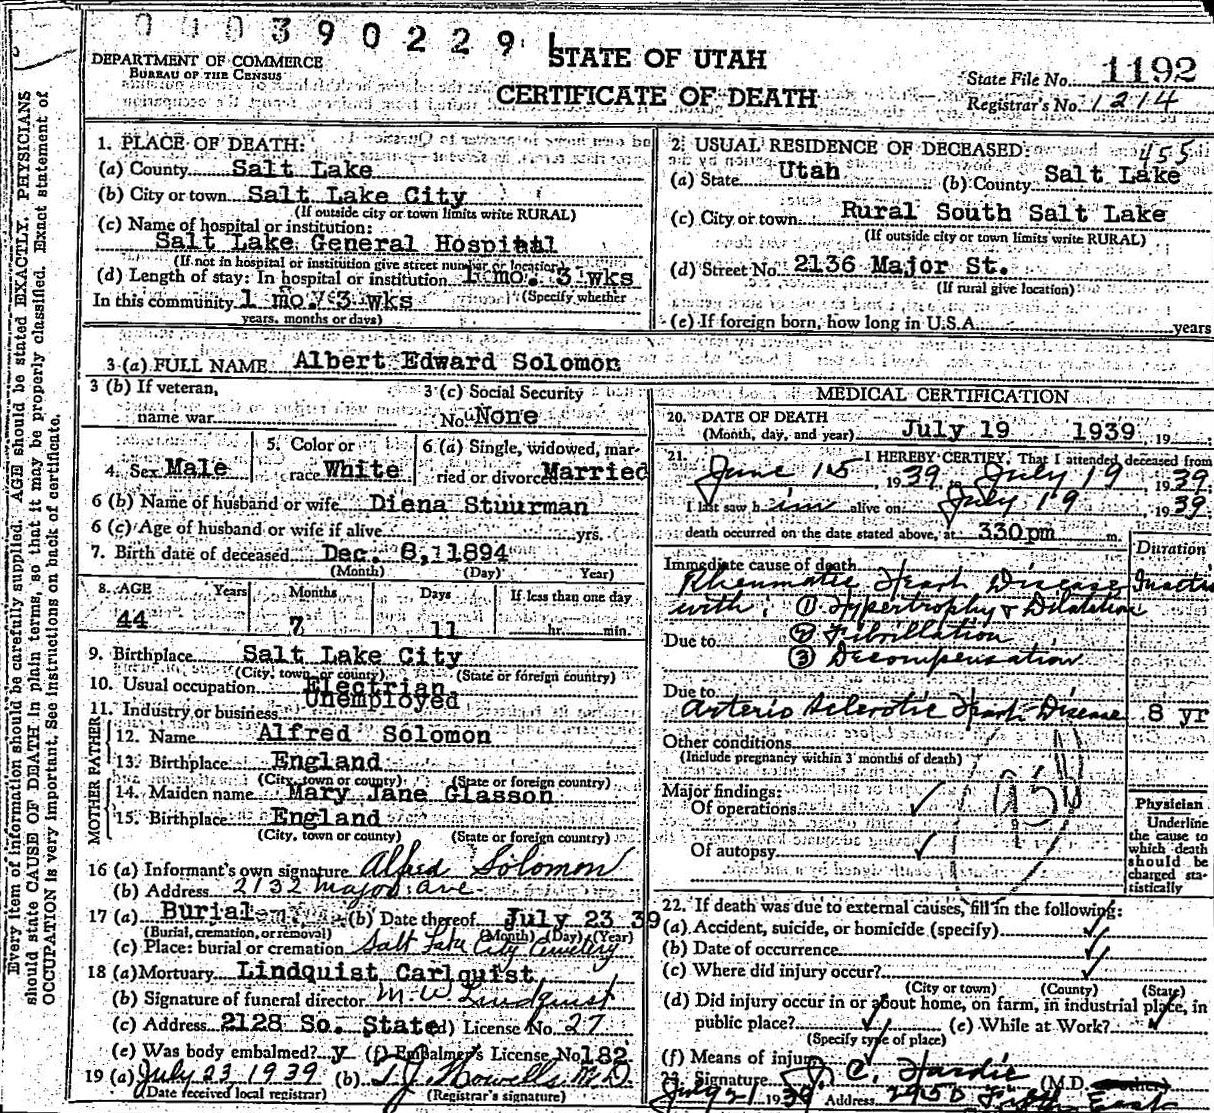 0 4 0 3 9 0 2 2 9 1
STATE OF UTAH
CERTIFICATE OF DEATH
DEPARTMENT OF COMMERCE
BUREAU OF THE CENSUS
State File No. 1192
Registrar's No. 1214
Every item of information should be carefully supplied. AGE should be stated EXACTLY. PHYSICIANS
should state CAUSE OF DEATH in plain terms, so that it may be properly classified. Exact statement of
OCCUPATION is very important. See instructions on back of certificate.
1. PLACE OF DEATH:
(a) County Salt Lake
(b) City or town Salt Lake City
(If outside city or town limits write RURAL)
(c) Name of hospital or institution:
Salt Lake General Hospital
(If not in hospital or institution give street number or location)
(d) Length of stay: In hospital or institution 1 mo. 3 wks
In this community 1 mo. 3 wks (Specify whether
years, months or days)
2. USUAL RESIDENCE OF DECEASED: 455
(a) State Utah (b) County Salt Lake
(c) City or town Rural South Salt Lake
(If outside city or town limits write RURAL)
(d) Street No. 2136 Major St.
(If rural give location)
(e) If foreign born, how long in U.S.A. years
3 (a) FULL NAME Albert Edward Solomon
3 (b) If veteran,
name war
3 (c) Social Security
No. None
4. Sex Male
5. Color or
race White
6 (a) Single, widowed, mar-
ried or divorced Married
6 (b) Name of husband or wife Diena Stuurman
6 (c) Age of husband or wife if alive yrs.
7. Birth date of deceased Dec. 8, 1894
(Month) (Day) Year)
8. AGE Years Months Days If less than one day
44 7 11 hr. min.
9. Birthplace Salt Lake City
(City, town, or county) (State or foreign country)
10. Usual occupation Electrian
11. Industry or business Unemployed
FATHER
12. Name Alfred Solomon
13. Birthplace England
(City, town or county) (State or foreign country)
MOTHER
14. Maiden name Mary Jane Glasson
15. Birthplace England
(City, town or county) (State or foreign country)
16 (a) Informant's own signature Alfred Solomon
(b) Address 2132 Major Ave
17 (a) Burial (b) Date thereof July 23 39
(Burial, cremation, or removal) (Month) (Day) (Year)
(c) Place: burial or cremation Salt Lake City Cemetery
18 (a) Mortuary Lindquist Carlquist
(b) Signature of funeral director M. W. Lindquist
(c) Address 2128 So. State (d) License No. 27
(e) Was body embalmed? y (f) Embalmer's License No. 182
19 (a) July 23 1939 (b) T. J. Howells M D
(Date received local registrar) (Registrar's signature)
MEDICAL CERTIFICATION
20. DATE OF DEATH
(Month, day, and year) July 19 1939, 19
21. I HEREBY CERTIFY, That I attended deceased from
June 15, 1939, to July 19, 1939.
I last saw him alive on July 19, 1939.
death occurred on the date stated above, at 330 pm m.
Duration
Immediate cause of death
Rheumatic Heart Disease
with: (1) Hypertrophy & Dilatation
Due to (2) Fibrillation
(3) Decompensation
Due to
Arterio Sclerotic Heart Disease 8 yr
Other conditions
(Include pregnancy within 3 months of death)
Major findings:
Of operations
Of autopsy
95b
Physician
Underline
the cause to
which death
should be
charged sta-
tistically
22. If death was due to external causes, fill in the following:
(a) Accident, suicide, or homicide (specify)
(b) Date of occurrence
(c) Where did injury occur?
(City or town) (County) (State)
(d) Did injury occur in or about home, on farm, in industrial place, in
public place? (e) While at Work?
(Specify type of place)
(f) Means of injury
23. Signature J. C. Hardie (M.D.
July 21 1939 Address 2950 Fifth East